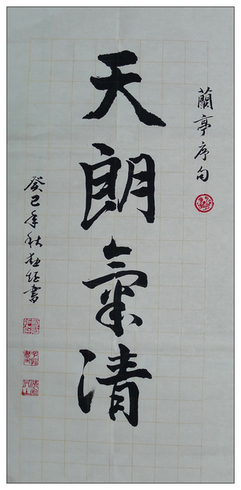 蘭亭序句
天朗氣清
癸巳年秋
書